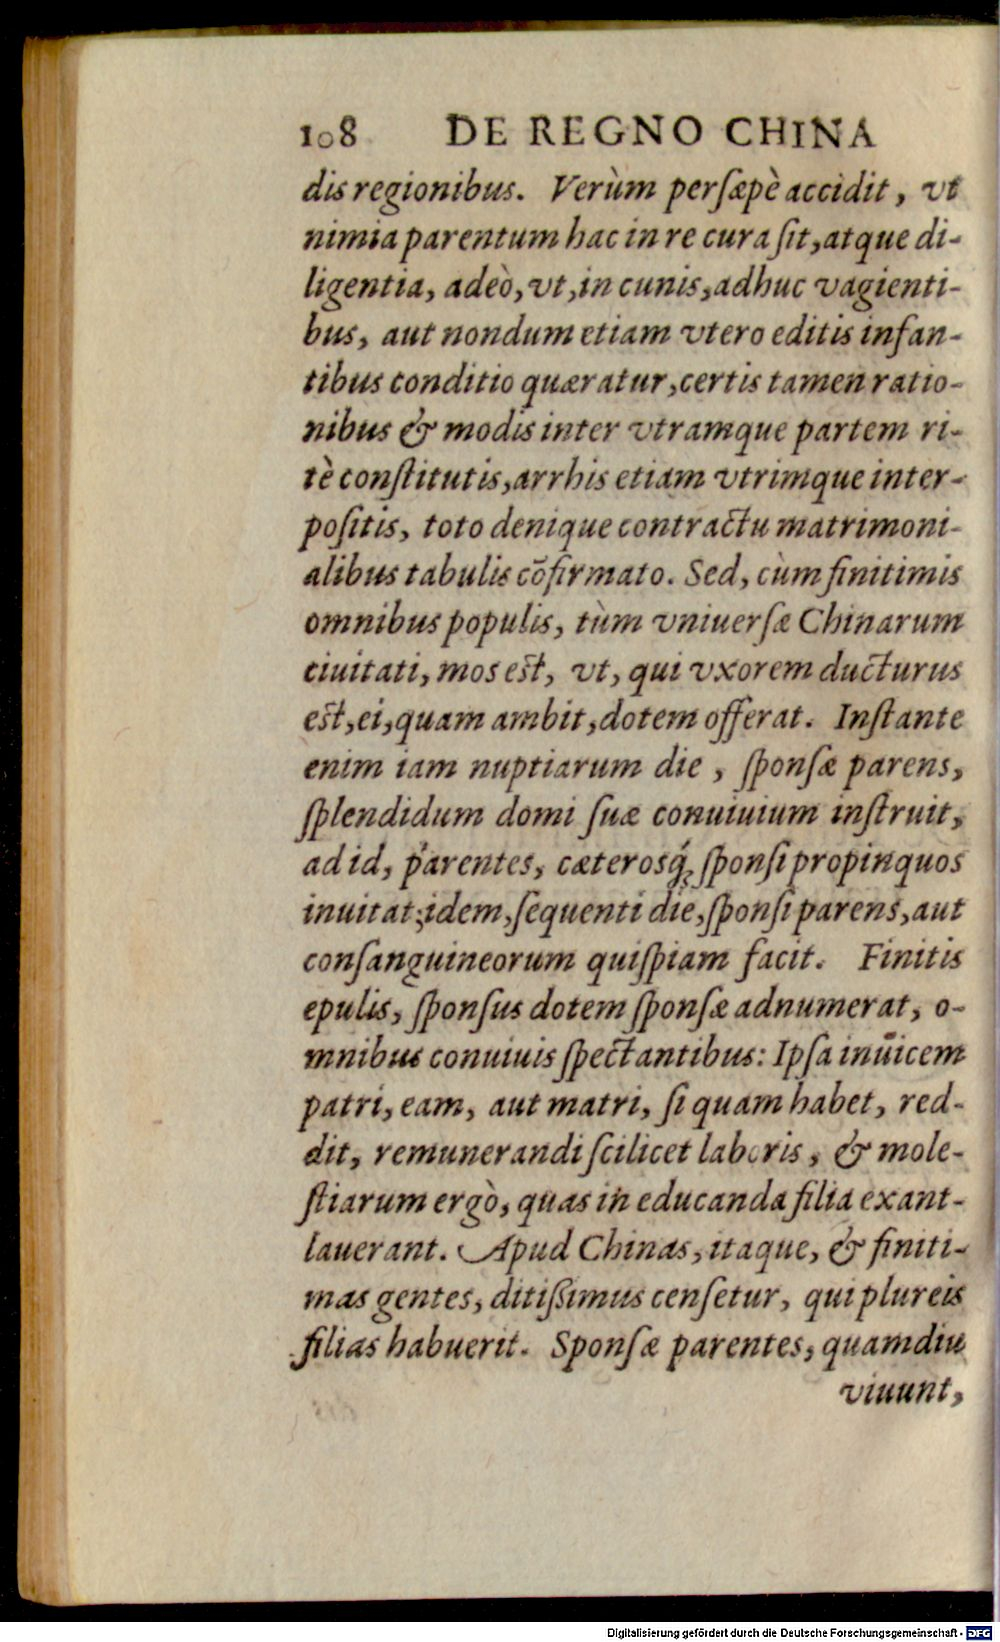 108 DE REGNO CHINA
dis regionibus. Verùm perſæpè accidit, vt
nimia parentum hac in re cura ſit, atque di-
ligentia, adeò, vt, in cunis, adhuc vagienti-
bus, aut nondum etiam vtero editis infan-
tibus conditio quæratur, certis tamen ratio-
nibus & modis inter vtramque partem ri-
tè conſtitutis, arrhis etiam vtrimque inter-
poſitis, toto denique contractu matrimoni-
alibus tabulis cōfirmato. Sed, cùm finitimis
omnibus populis, tùm vniuerſæ Chinarum
ciuitati, mos est, vt, qui vxorem ducturus
est, ei, quam ambit, dotem offerat. Inſtante
enim iam nuptiarum die, ſponſæ parens,
ſplendidum domi ſuæ conuiuium inſtruit,
ad id, parentes, cæterosq́; ſponſi propinquos
inuitat; idem, ſequenti die, ſponſi parens, aut
conſanguineorum quiſpiam facit. Finitis
epulis, ſponſus dotem ſponſæ adnumerat, o-
mnibus conuiuis ſpectantibus: Ipſa inuicem
patri, eam, aut matri, ſi quam habet, red-
dit, remunerandi ſcilicet laboris, & mole-
ſtiarum ergò, quas in educanda filia exant-
lauerant. Apud Chinas, itaque, & finiti-
mas gentes, ditißimus cenſetur, qui plureis
filias habuerit. Sponſæ parentes, quamdiu
viuunt,
Digitalisierung gefördert durch die Deutsche Forschungsgemeinschaft - DFG